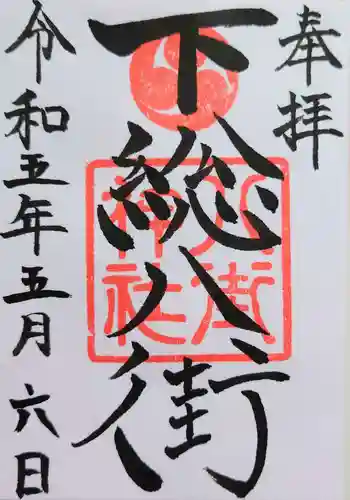 奉拝
下総八街
八街神社
令和五年五月六日